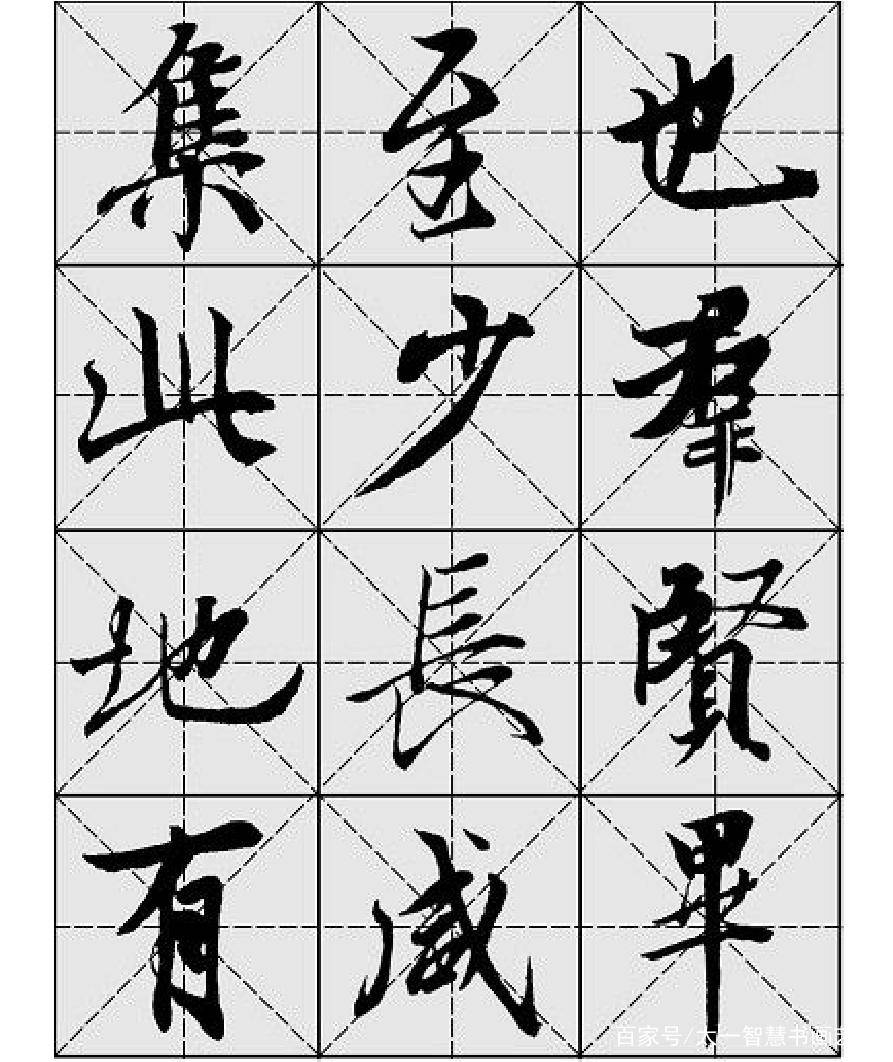 也羣賢畢
至少長咸
集此地有
百家号/太一智慧书画